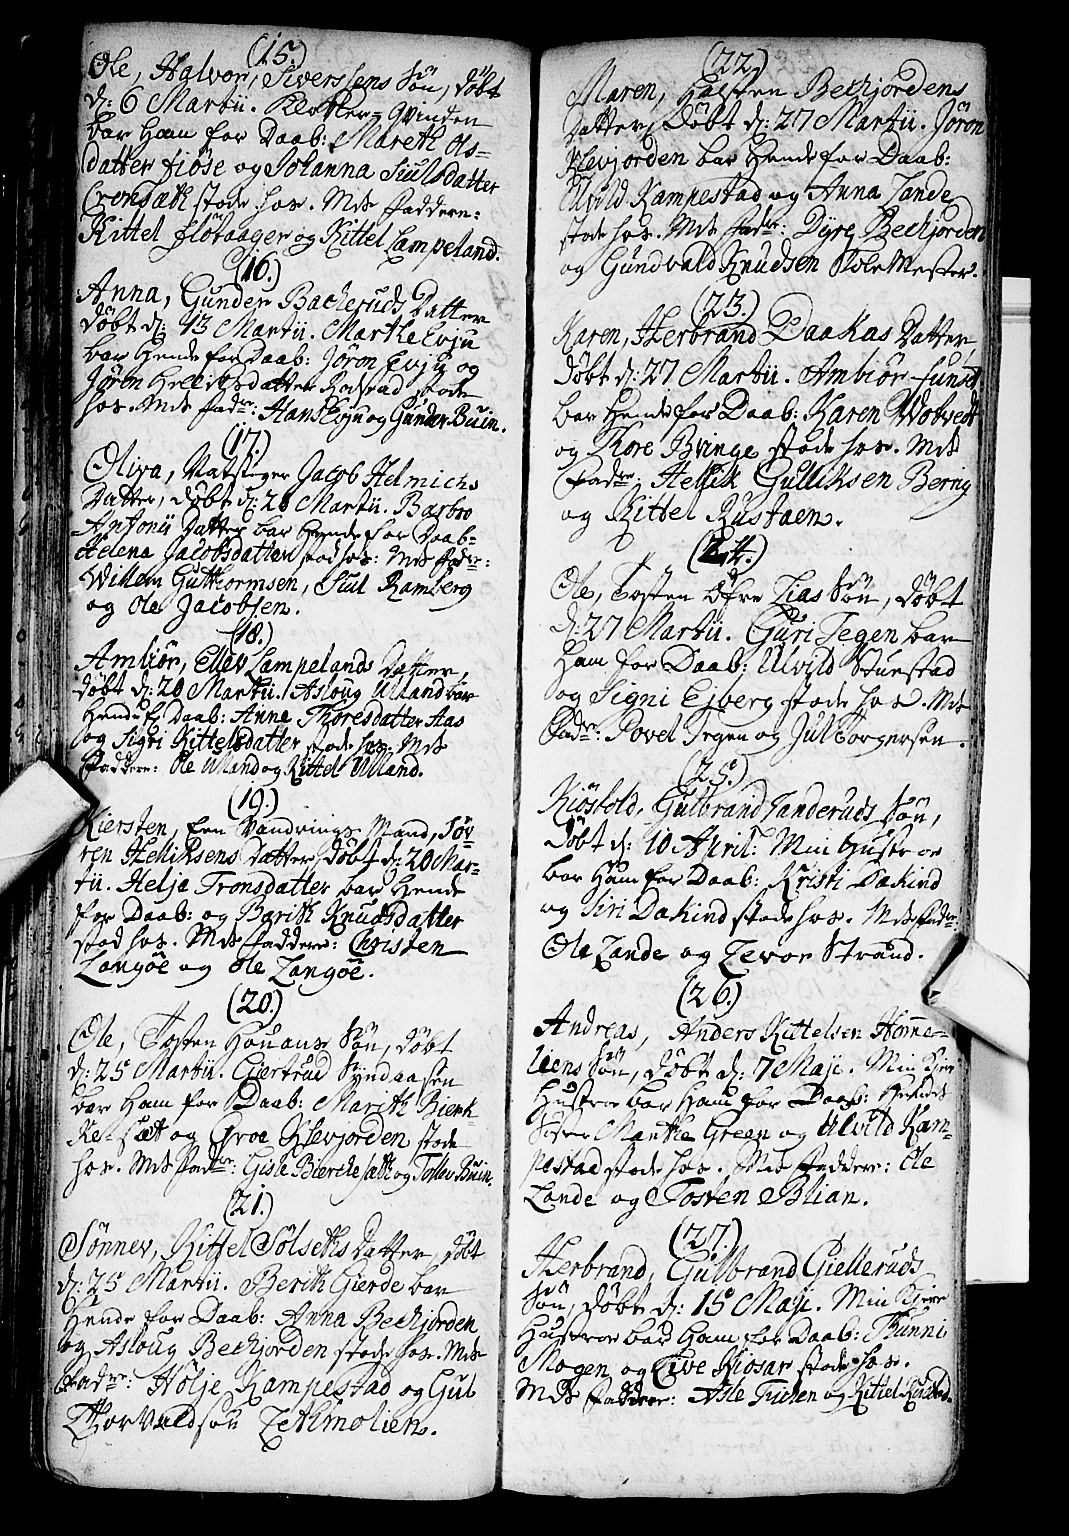 (15.)
Ole, Halvor, Siverssens Søn, døbt
d: 6 Martii. Klokker-Qvinden
bar Ham for Daab: Mareth Ols-
datter fiöse og Johanna Juulsdatter
Cronsæth stode hos. Mds faddere:
Kittel flötaager og Kittel Lampeland.
(16.)
Anna, Gunder Bacheruds Datter
Döbt d: 13 Martii. Marthe Evju
bar Hende for Daab: Jöron Evju og
Jören datter stode
hos. Mds fadr: Hans Evju og Gunder Buin.
(17.)
Oliva, Jacob Helmichs
Datter, döbt d: 20 Martii. Barbro
Antonii Datter bar Hende for Daab-
Helena Jacobsdatter stod hos: Mds fadr:
Willem Gutthormsen, Juul Ramberg
og Ole Jacobsen.
(18.)
Ambiör, Ellev Lampelands Datter,
döbt d: 20 Martii. Asloug Ulland bar
Hende f. Daab: Anne Thoresdatter Aas
og Sigri Kittelsdatter stode hos. Mds
faddere: Ole Ulland og Kittel Ulland.
(19.)
Kiersten, een Vandrings Mand, Söv-
ren Helliksens Datter, döbt d: 20 Mar-
tii. Helje Tronsdatter bar Hende
for Daab: og Barith Knudsdatter
stod hos. Mds faddere: Christen
Langöe og Ole Langöe.
(20.)
Ole, Tosten Houans Sön, döbt
d: 25 Martii. Giertrud Syndaasen
bar Ham for Daab: Marith Bierk-
Ke-sæt og Groe Klevjorden stode
hos. Mds fadr: Gisle Bierckesæt og Tollev Buin.
(21.)
Sönnev, Kittel Sölseths Datter, döbt
d: 25 Martii. Berith Gierde bar
Hende for Daab: Anna Bechjorden
og Asloug Bechjorden stode hos. Mds
fadr: Hölje Kampestad og Gul
Thorvaldsön Lethmolien.
(22.)
Maren, Halsten Bechjordens
Datter, Döbt d: 27 Martii. Jörön
Klevjorden bar Hende for Daab:
Ulvild Kampestad og Anna Lande
stode hos. Mds fadr: Dyre Bechjorden
og Gundvald Knudsen Skole Mester.
(23.)
Karen, Herbrand Daakas Datter,
döbt d: 27 Martii. Ambiör
bar Hende for Daab: Karen Wotvedt
og Thore Bringe stode hos. Mds
Fadr: Hellik Gulliksen Berng
og Kittel Rustaen.
(24.)
Ole, Tosten Öfre Lias Sön, döbt
d: 27 Martii. Guri Tegen bar
Ham for Daab: Ulvild Stuestad
og Signi Ejberg stode hos. Mds
Fadr: Povel Tegen og Jul Torgersen.
(25.)
Kiöstold, Gulbrand Landeruds Sön,
Döbt d: 10 April: Min Hustroe
bar Ham for Daab: Kristi Dakind
og Siri Dakind stode hos. Mds fadr:
Ole Lande og Levor Strand.
(26.)
Andreas, Anders Kittelsen Homme-
liens Sön, döbt d: 7 Maji. Min Kjere
Hustroe bar Ham for Daab: Hendes
Söster Marthe Green og Ulvild Kam-
pestad stode hos. Mds faddere: Ole
Lande og Tosten Blian.
(27.)
Herbrand, Gulbrand Gielleruds
Sön, döbt d: 15 Maji. Min Kjere
Hustroe bar Ham for Daab: Thunni
Mogen og Live Kiösar stode hos.
Mds faddere: Asle Tuchen og Kittel